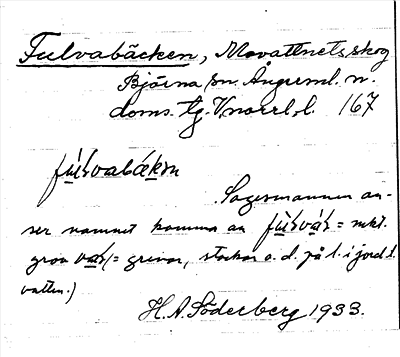 Fulvabäcken, Movattnets skog
Björna sn. Ångerml. n.
doms. tg. V.norrl. l. 167
Sagesmannen an-
ser namnet komma av = rukt.
grov = grenar, stockar o. d. på l. i jord l.
vatten.)
H. A. Söderberg 1933.